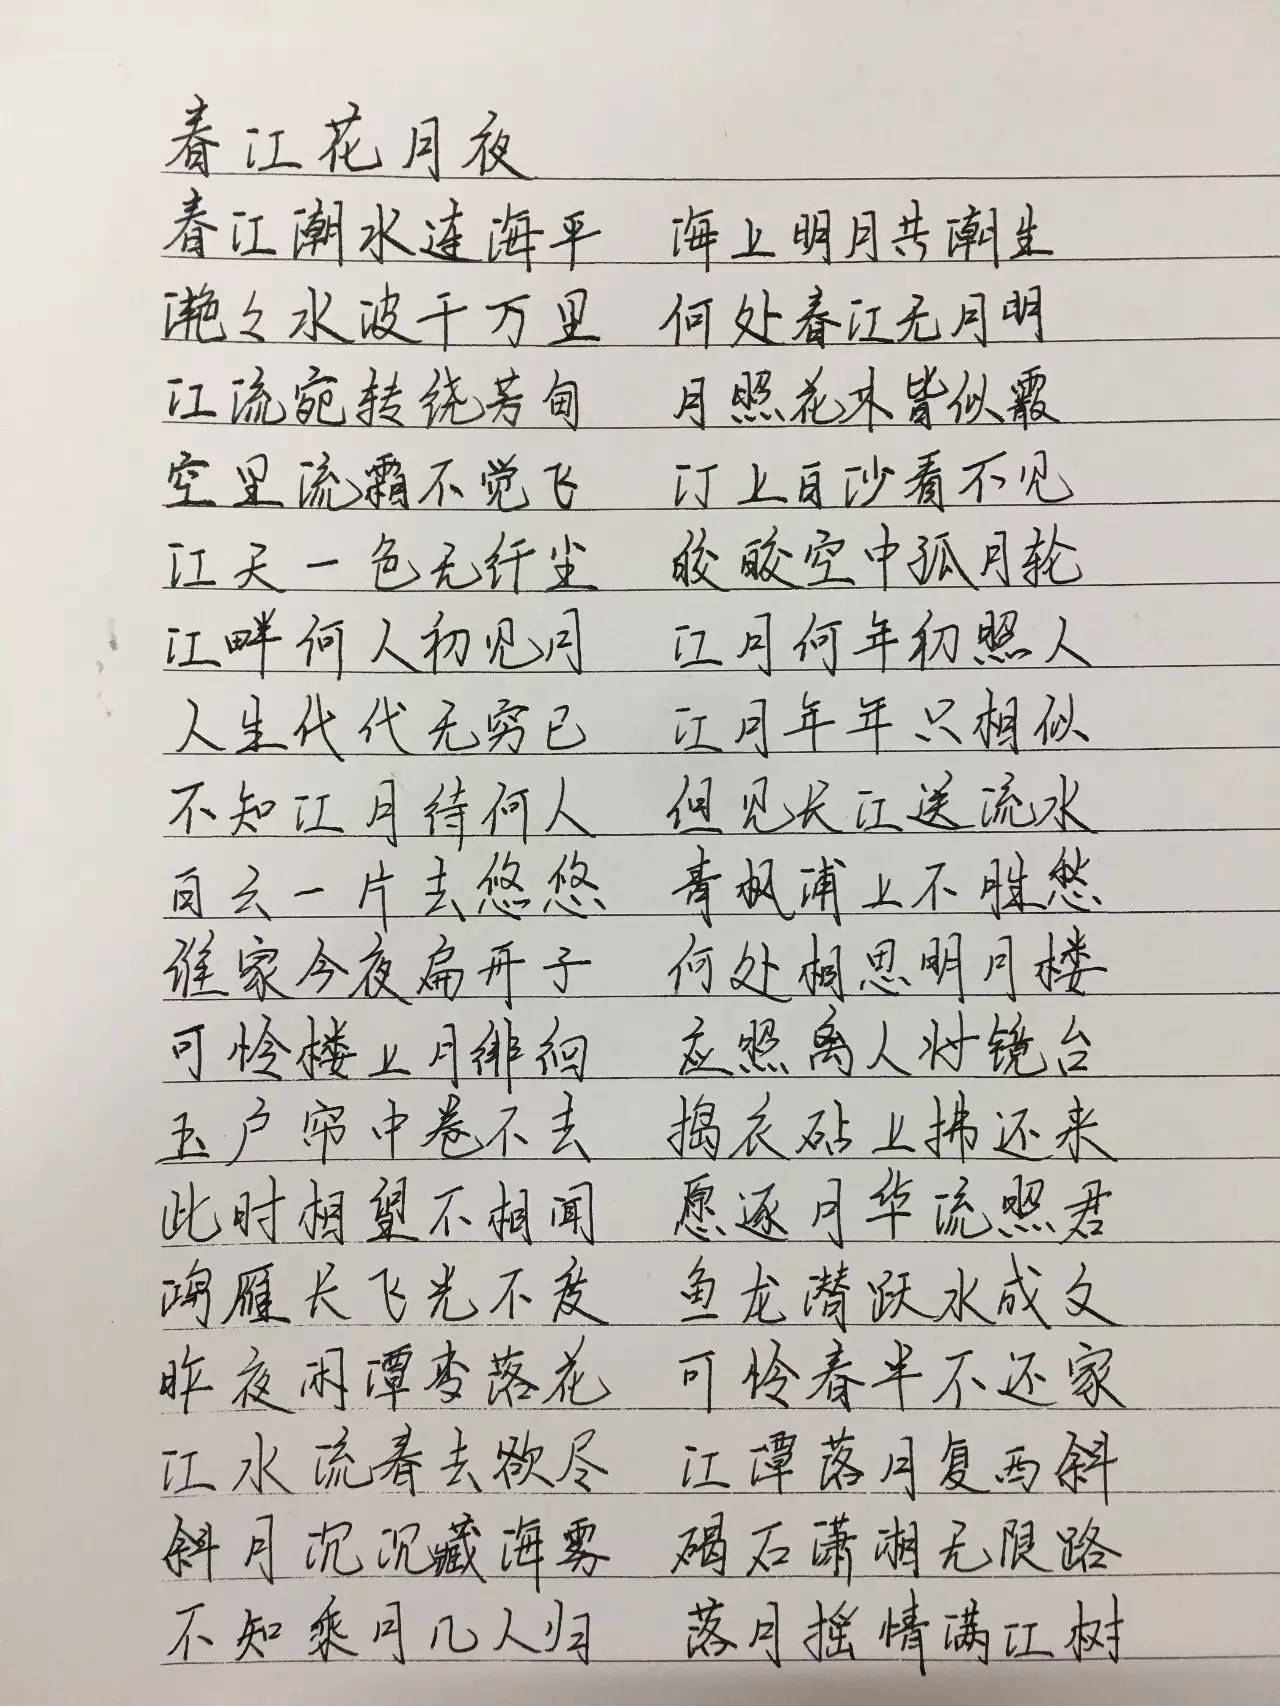 春江花月夜
春江潮水连海平 海上明月共潮生
滟々水波千万里 何处春江无月明
江流宛转绕芳甸 月照花木皆似霰
空里流霜不觉飞 汀上白沙看不见
江天一色无纤尘 皎皎空中孤月轮
江畔何人初见月 江月何年初照人
人生代代无穷已 江月年年只相似
不知江月待何人 但见长江送流水
白云一片去悠悠 青枫浦上不胜愁
谁家今夜扁开子 何处相思明月楼
可怜楼上月徘徊 应照离人妆镜台
玉户帘中卷不去 捣衣砧上拂还来
此时相望不相闻 愿逐月华流照君
鸿雁长飞光不度 鱼龙潜跃水成文
昨夜闲潭梦落花 可怜春半不还家
江水流春去欲尽 江潭落月复西斜
斜月沉沉藏海雾 碣石潇湘无限路
不知乘月几人归 落月摇情满江树